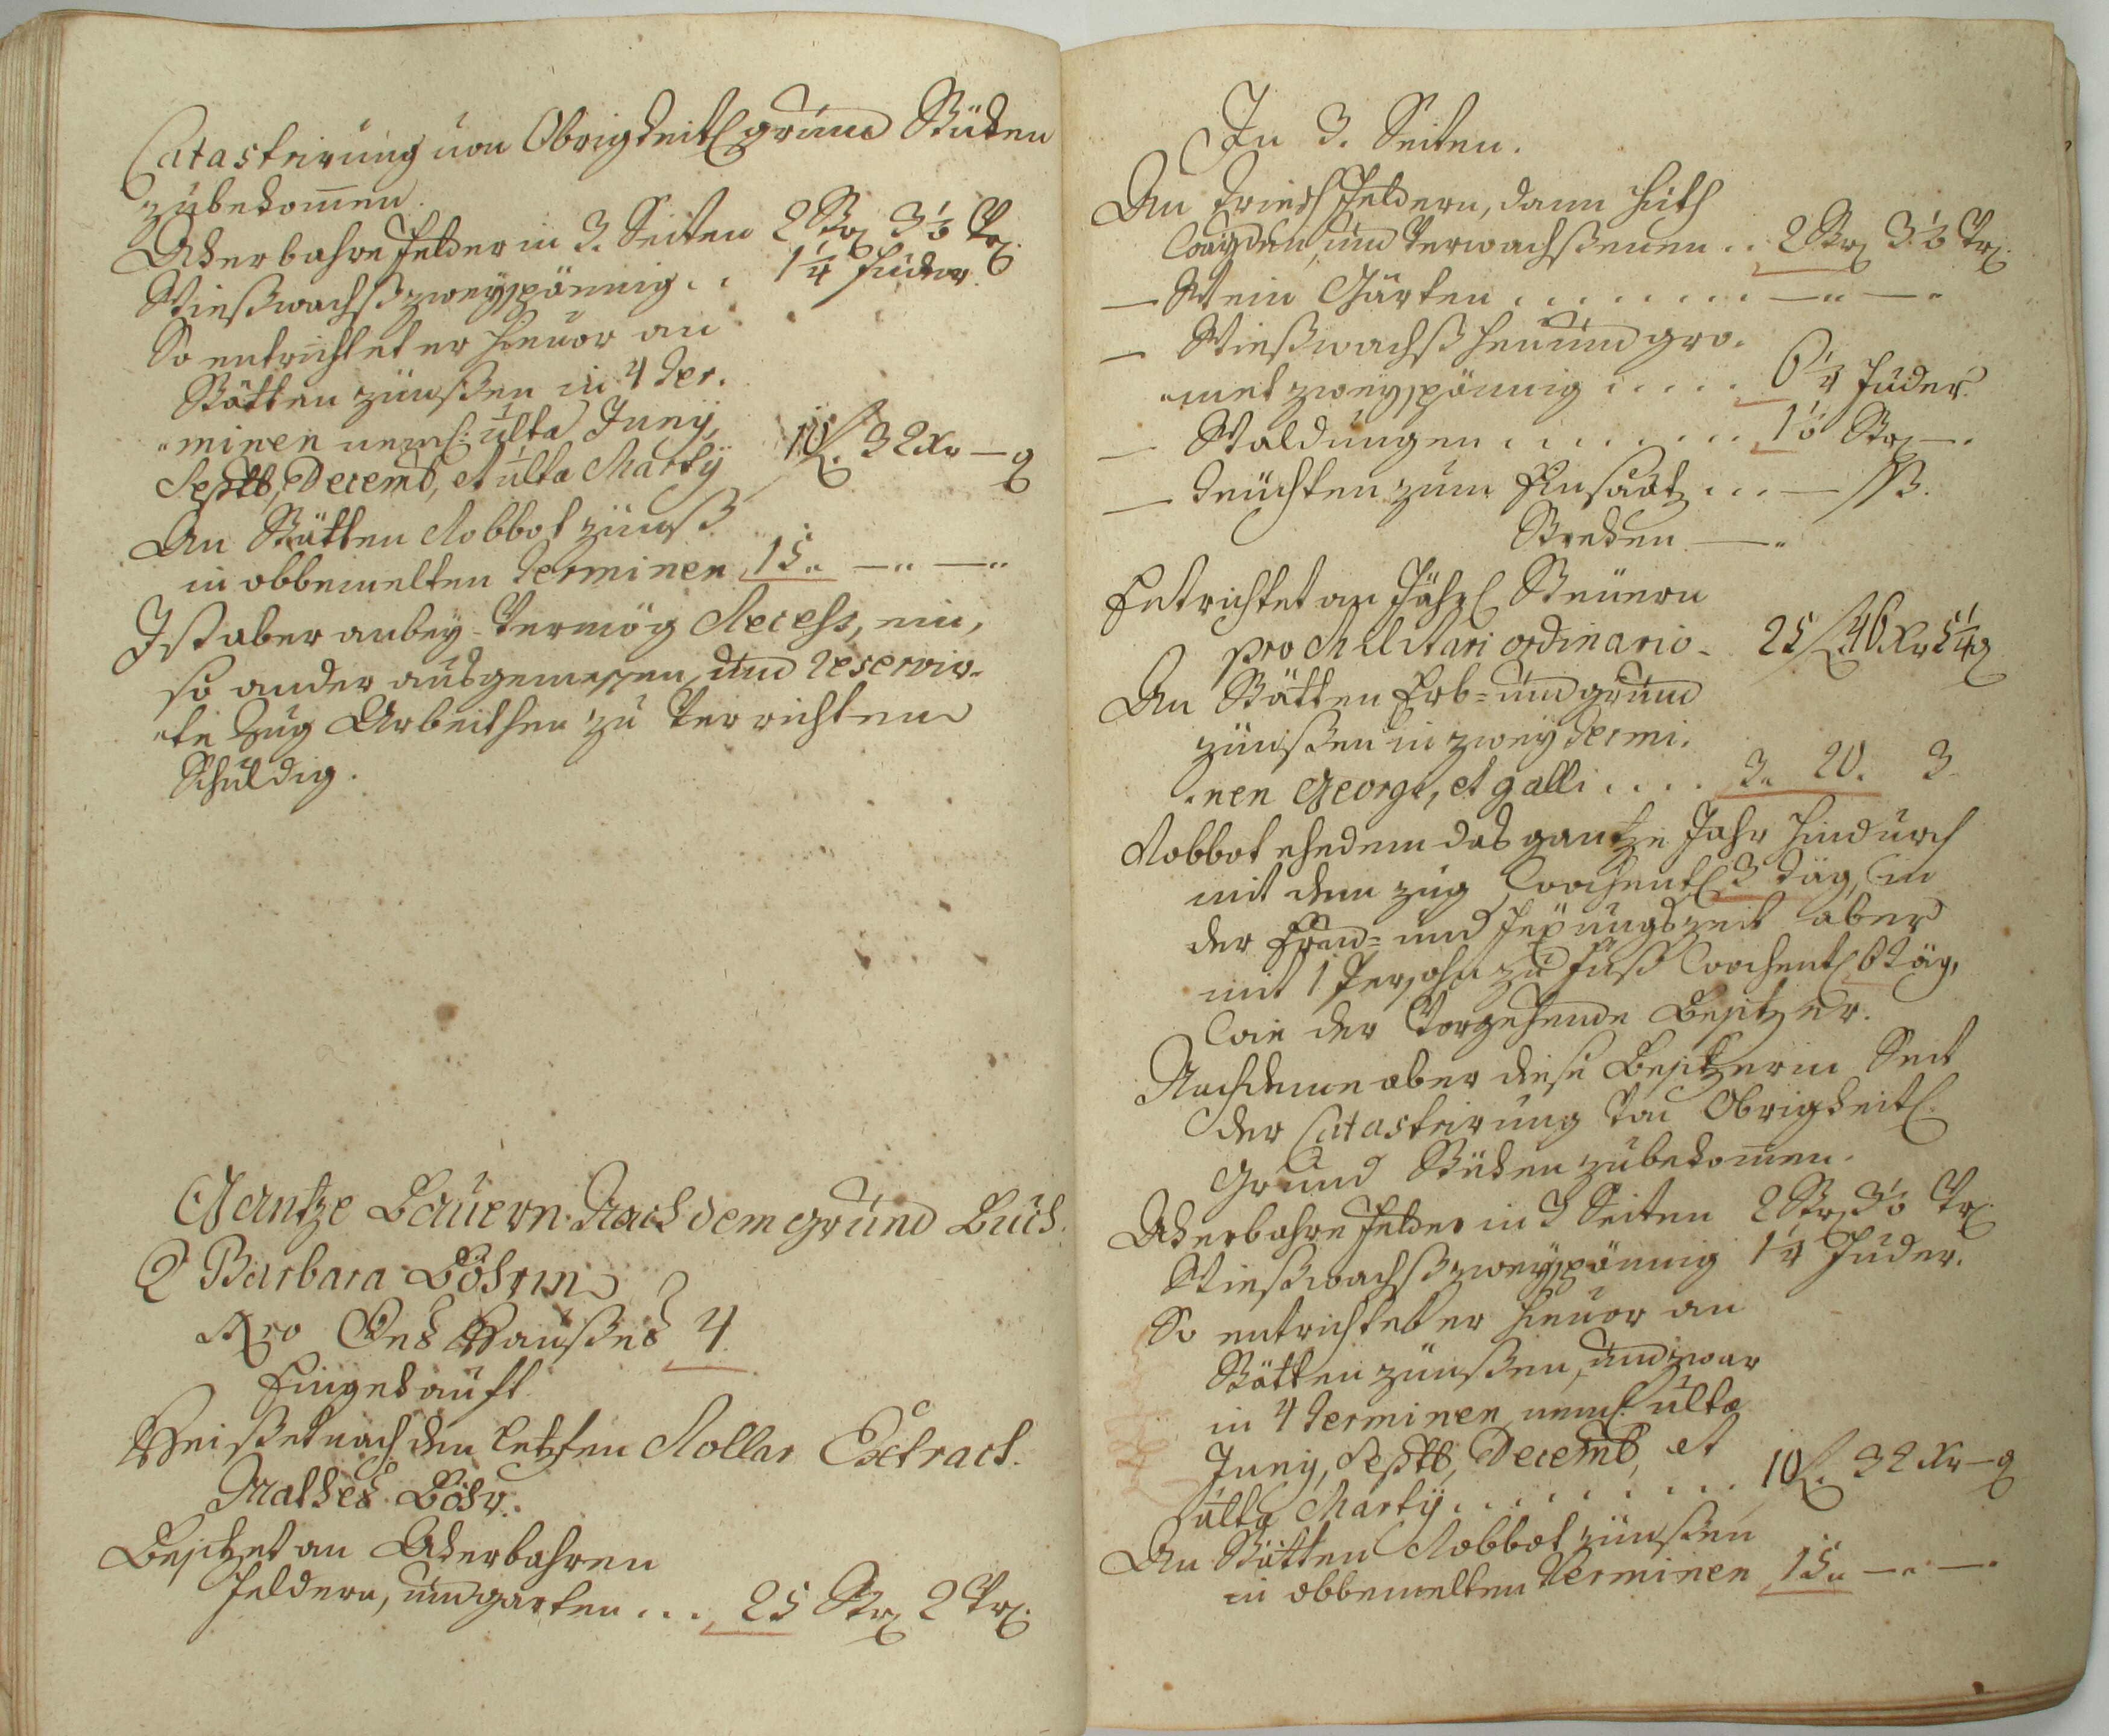 Catastrirung von Obrigkeitl grund Stüken
zubekomen.
Akerbahre felder in 3. Seiten 2 Str 3 1/2 Vr.
Wießwachß zweyspännig .. 1 1/4 fuder.
So entrichtet er hievor an
Stätten zünßen in 4 Ter„
„minen neml: ulta Juny,
Septb, Decemb, et ulta Marty 10 f. 32 Xr — q
An Stätten Robbot zünß
in obbemelten Terminen 15 „ — „ — „
Ist aber anbey Vermög Recess, ein,
so ander ausgemessen, und reservir„
„te Zug Arbeithen zu Verrichten
Schuldig.
Gantze Bauern Nach dem grund Buch.
Barbara Böhmin
Nro Des Haußes 4.
Eingekauft.
Heißet nach den letzten Rollar Extract.
Mathes Böhr.
Besitzet an Akerbahren
feldern, und garten ... 25 Str 2 Vr.
In 3. Seiten.
An Triesch feldern, dann Huth
Wayden, und Verwachßenen .. 2 Str 3 1/2 Vr.
— Wein Gärten ........ — „ — „
— Wießwachß heu und gro„
„met zweyspännig ..... 6 1/4 fuder.
— Waldungen ........ 1 1/2 Str — .
— Teüchten zum Einsatz ... — ß.
Streken — „
Entrichtet an Jährl Steüern
pro Militari ordinario - 25 f 46 Xr 5 1/4 q
An Stätten Erb- und grund
zünßen in zwey Termi„
„nen Georgi, et galli .... 3 „ 20. 3
Robbot ehedem das gantze Jahr hindurch
mit dem zug Wochentl 3 täg, in
der Ernd- und fexungszeit aber
mit 1 Persohn zu fuß Wochentl 6 täg,
Wie der Vorgehende Besitzer.
Nachdeme aber diese Besitzerin Seit
der Catastrirung Von Obrigkeitl.
Grund Stüken zubekomen.
Akerbahre felder in 3 Seiten 2 Str 3 1/2 Vr.
Wießwachß zweyspännig 1 1/4 fuder.
So entrichtet er hievor an
Stätten zünßen, und zwar
in 4 Terminen neml: ulta
Juny, Septb, Decemb, et
ulta Marty .......... 10 f. 32 Xr — q
An Stätten Robbot zünßen
in obbemelten Terminen 15 „ — „ — .